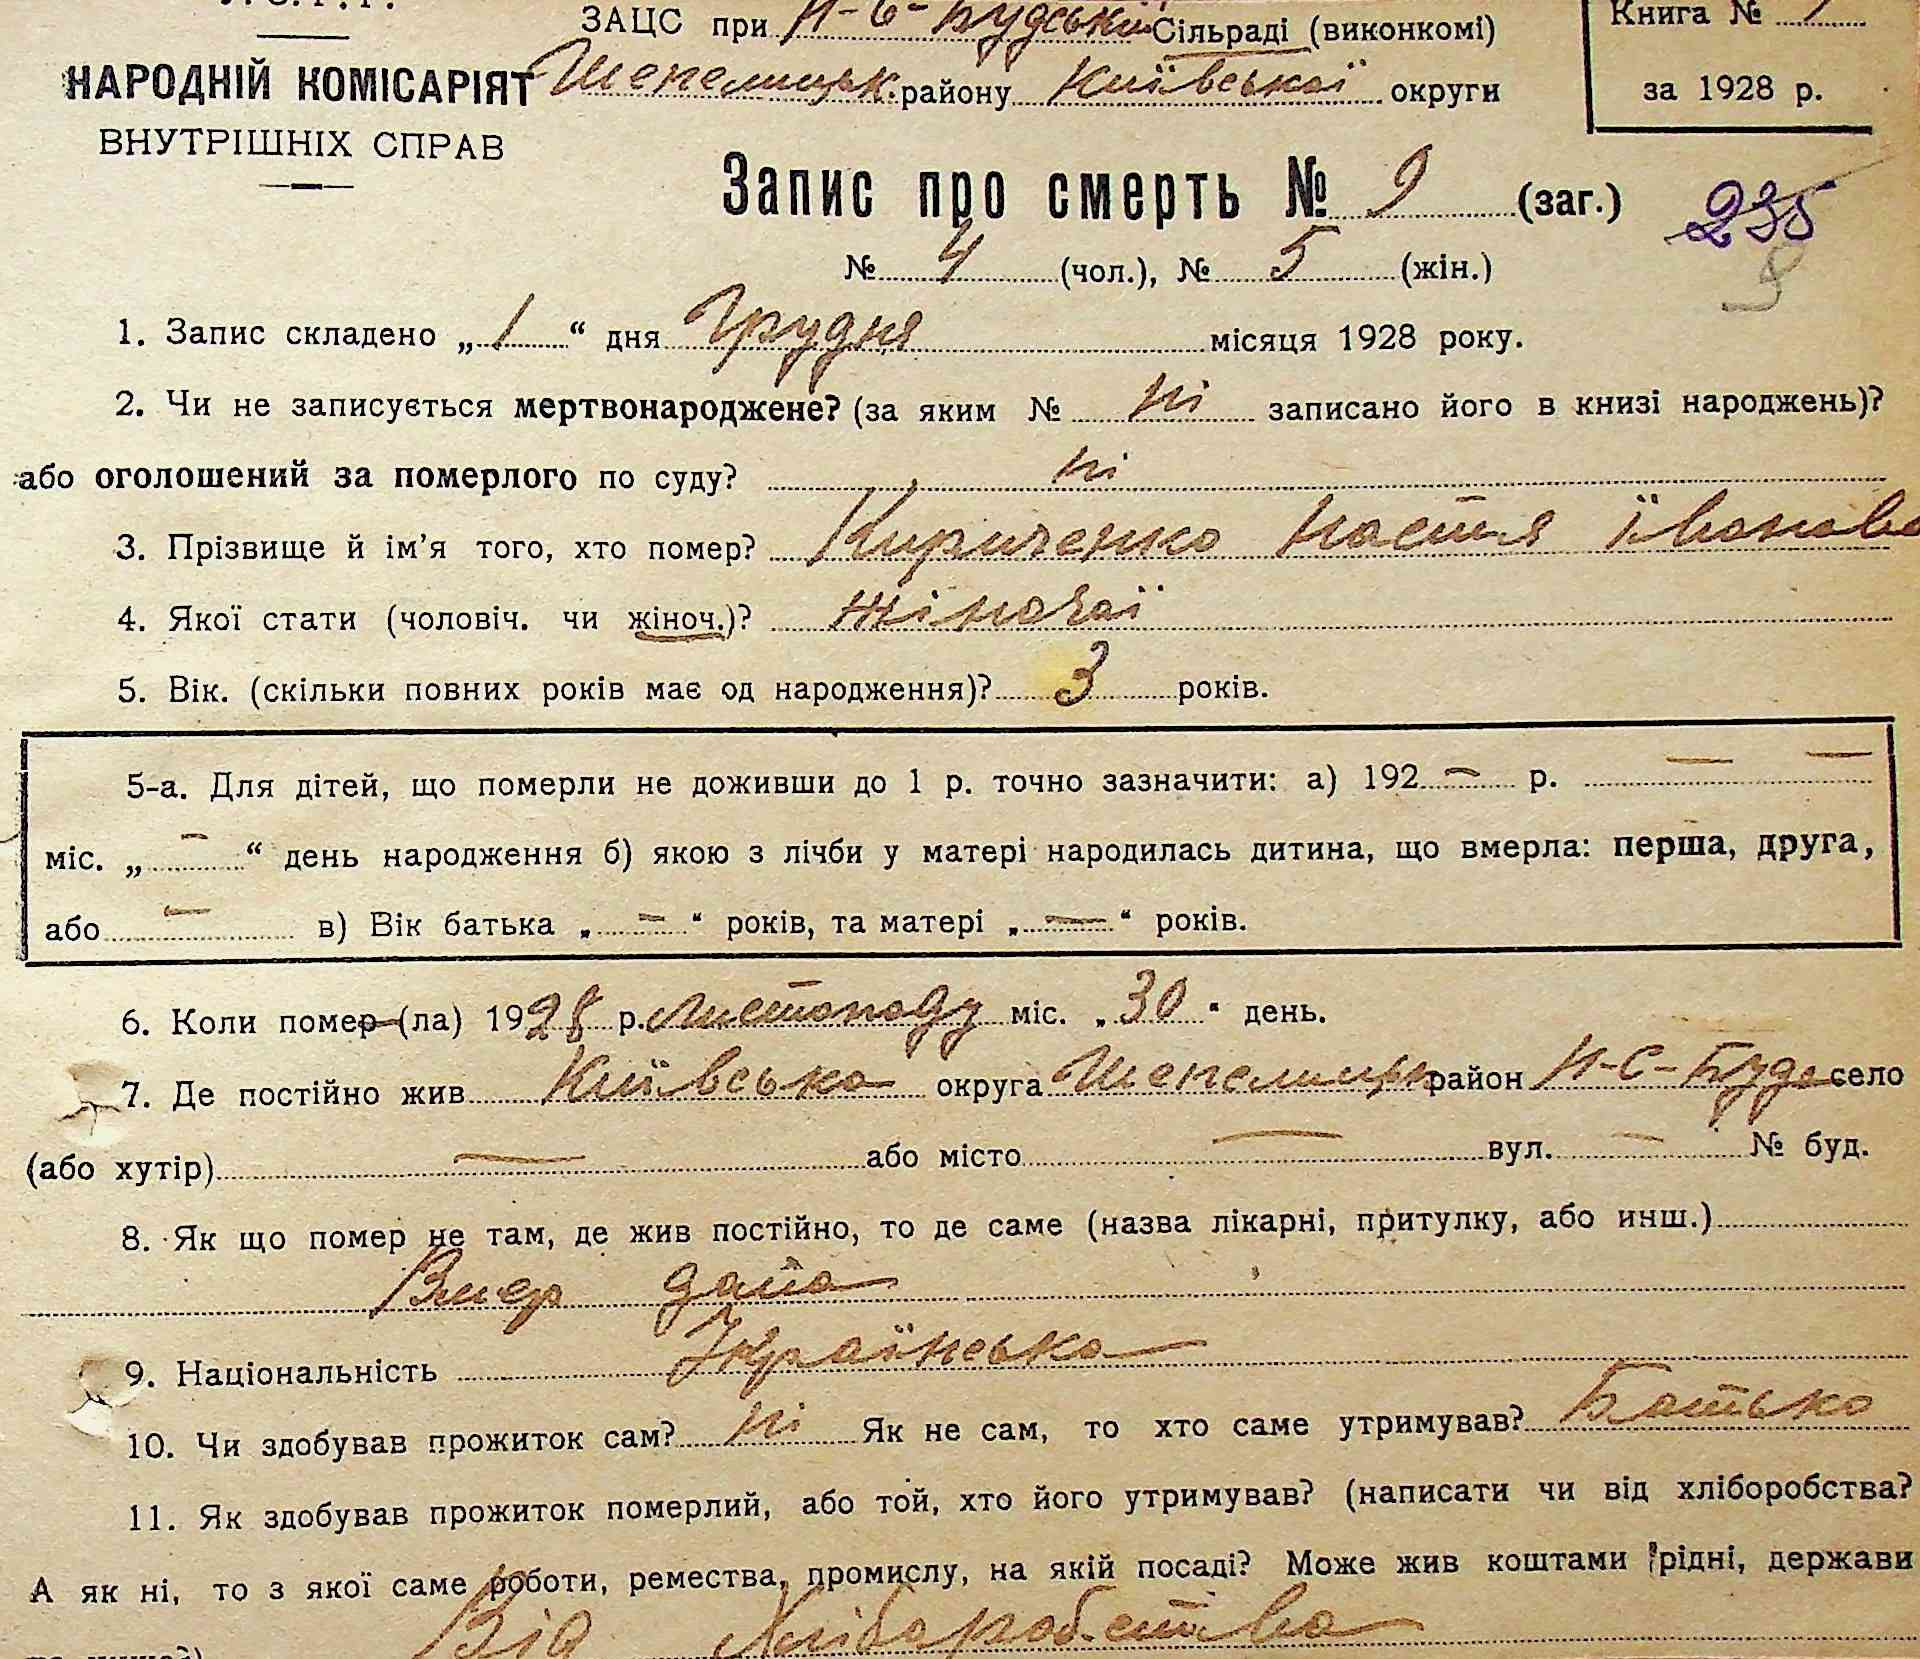 У.С.Р.Р.
ЗАЦС при Н-С-Будській Сільраді (виконкомі)
Книга №
НАРОДНІЙ КОМІСАРІЯТ
Шепелицьк. району Київської округи
за 1928 р.
ВНУТРІШНІХ СПРАВ
Запис про смерть № 9 (заг.)
235
9
№ 4 (чол.), № 5 (жін.)
1. Запис складено „ 1 “ дня Грудня місяця 1928 року.
2. Чи не записується мертвонароджене? (за яким № ні записано його в книзі народжень)?
або оголошений за померлого по суду? ні
3. Прізвище й ім'я того, хто помер? Кириченко Настя Їванова
4. Якої стати (чоловіч. чи жіноч.)? Жіночої
5. Вік. (скільки повних років має од народження)? 3 років.
5-а. Для дітей, що померли не доживши до 1 р. точно зазначити: а) 192 — р. — —
міс. „ — “ день народження б) якою з лічби у матері народилась дитина, що вмерла: перша, друга,
або — в) Вік батька „ — “ років, та матері „ — “ років.
6. Коли помер (ла) 1928 р. Листопаду міс. „ 30 “ день.
7. Де постійно жив Київська округа Шепелицьк район Н-С-Буда село
(або хутір) — або місто — вул. — № буд.
8. Як що помер не там, де жив постійно, то де саме (назва лікарні, притулку, або инш.)
Вмер дома
9. Національність Українська
10. Чи здобував прожиток сам? ні Як не сам, то хто саме утримував? Батько
11. Як здобував прожиток померлий, або той, хто його утримував? (написати чи від хліборобства?
А як ні, то з якої саме роботи, ремества, промислу, на якій посаді? Може жив коштами рідні, держави
Від Хліборобства